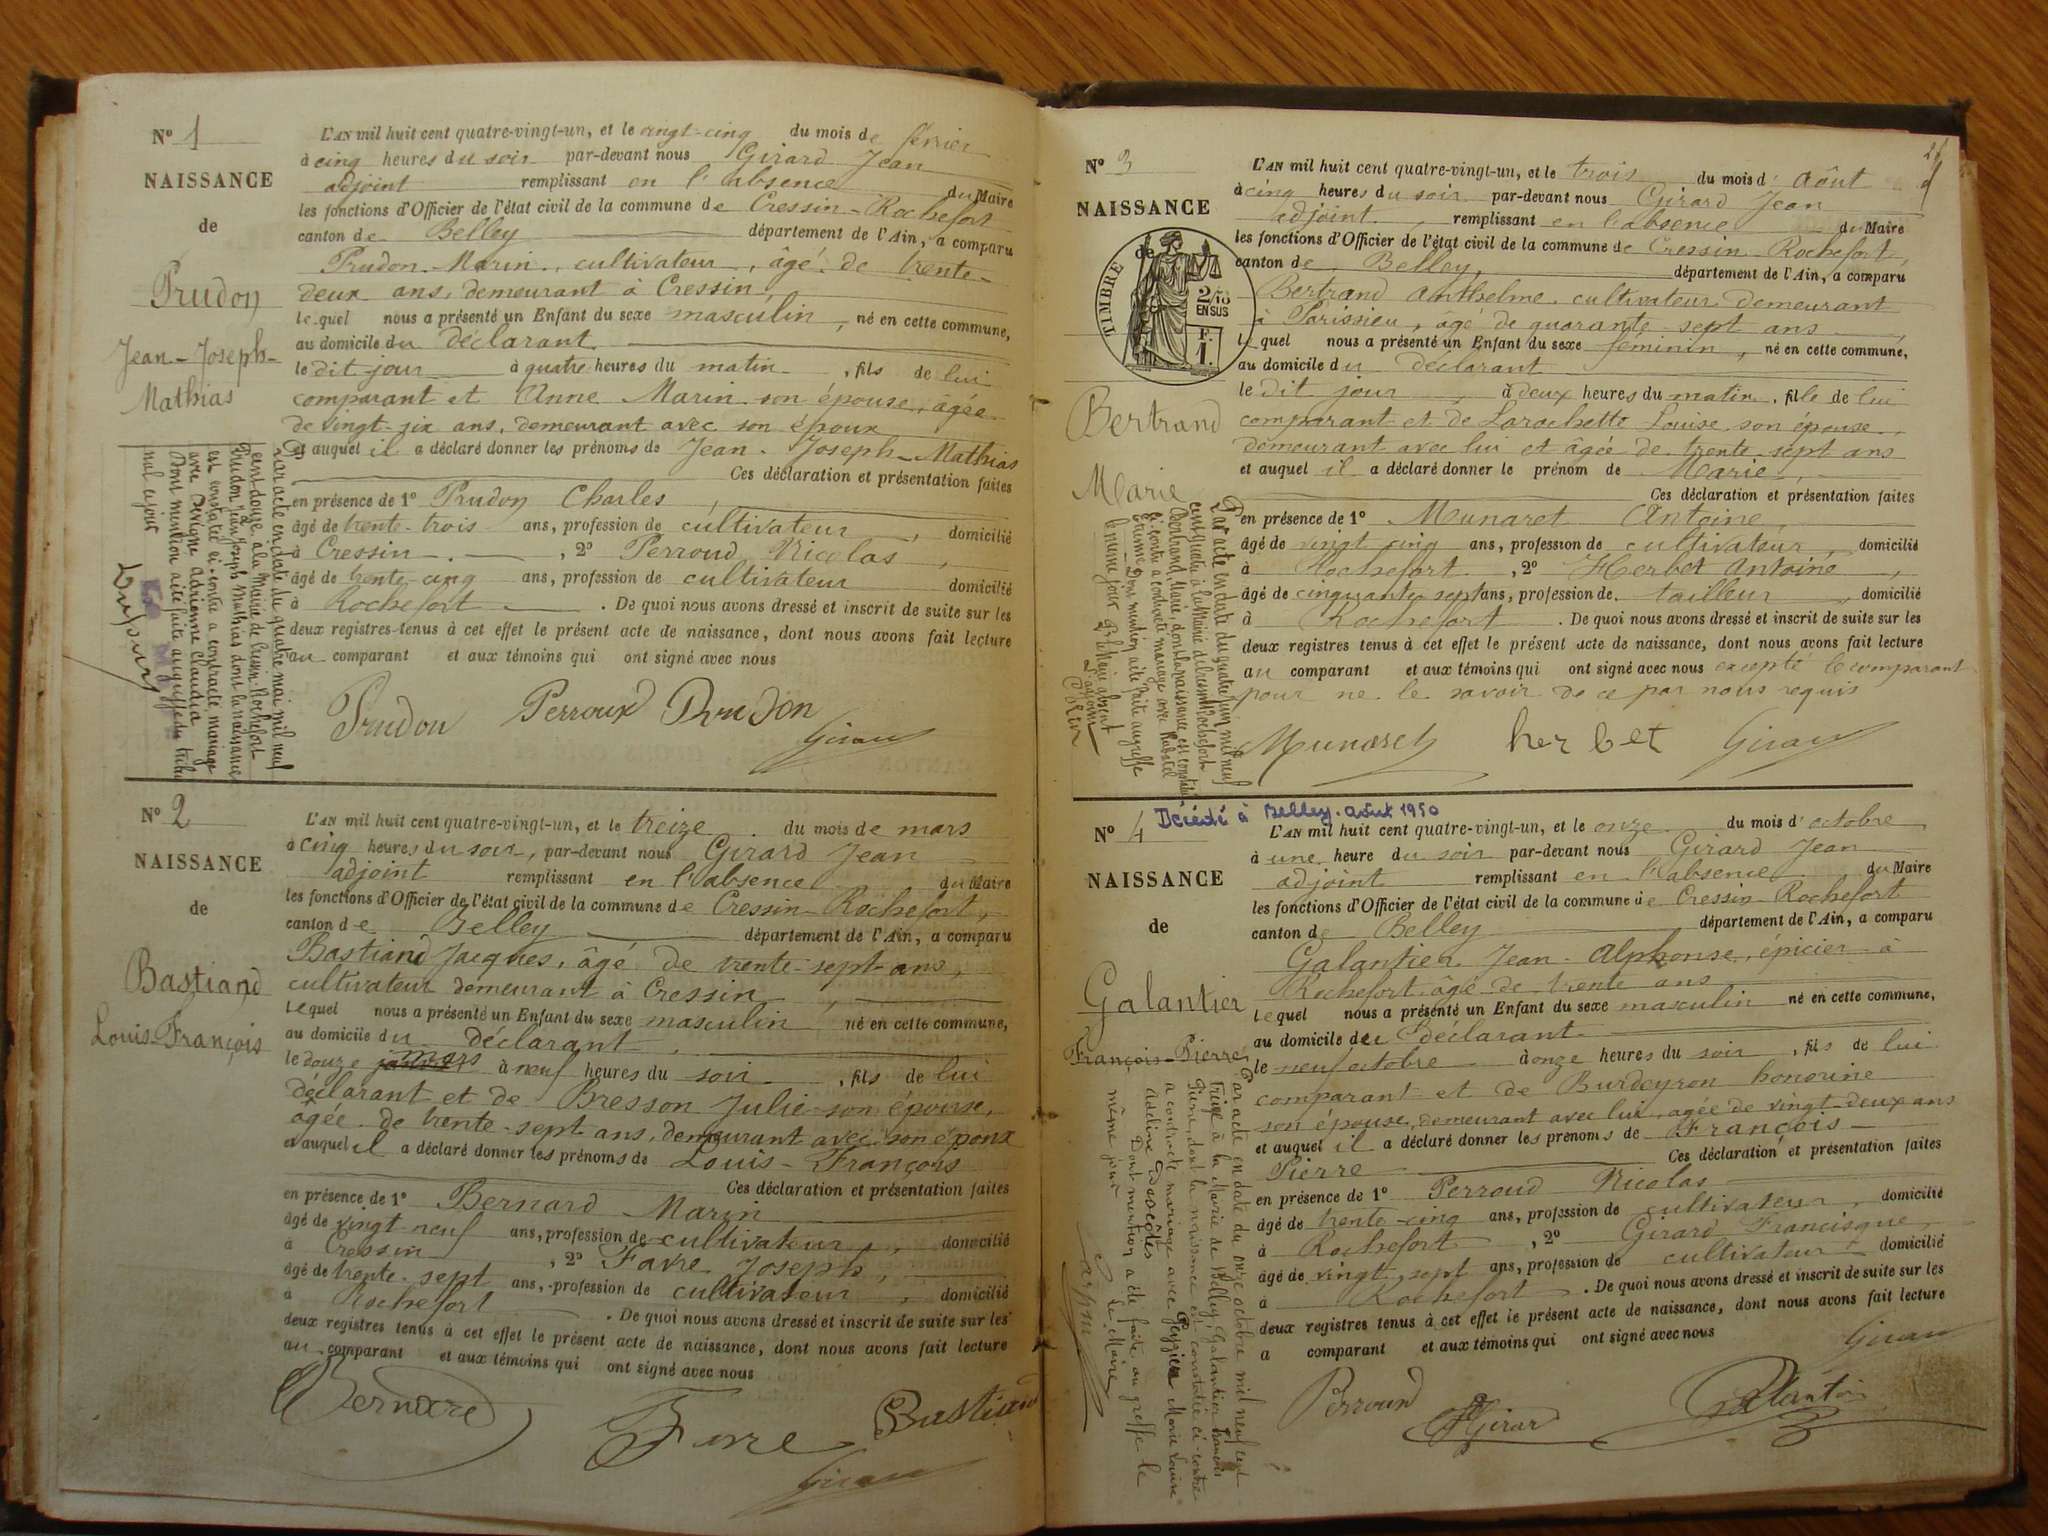 Nº 1
NAISSANCE
de
Prudon
Jean-Joseph-
Mathias
L'AN mil huit cent quatre-vingt-un, et le vingt-cinq du mois de février
à cinq heures du soir par-devant nous Girard Jean
adjoint remplissant en l'absence du Maire
les fonctions d'Officier de l'état civil de la commune de Cressin-Rochefort
canton de Belley département de l'Ain, a comparu
Prudon Marin, cultivateur, âgé de trente-
deux ans, demeurant à Cressin,
lequel nous a présenté un Enfant du sexe masculin, né en cette commune,
au domicile du déclarant
le dit jour à quatre heures du matin, fils de lui
comparant et Anne Marin son épouse, âgée
de vingt-six ans, demeurant avec son époux
et auquel il a déclaré donner les prénoms de Jean-Joseph-Mathias
Ces déclaration et présentation faites
en présence de 1º Prudon Charles,
âgé de trente-trois ans, profession de cultivateur, domicilié
à Cressin, 2º Perroud Nicolas,
âgé de trente-cinq ans, profession de cultivateur domicilié
à Rochefort. De quoi nous avons dressé et inscrit de suite sur les
deux registres tenus à cet effet le présent acte de naissance, dont nous avons fait lecture
au comparant et aux témoins qui ont signé avec nous
Prudon Perroux Prudon
Girard
Par acte en date du quatre mai mil neuf
cent douze à la Mairie de Cressin-Rochefort
Prudon Jean Joseph Mathias dont la naissance
est constatée ci-contre a contracté mariage
avec Adrienne Claudia
Dont mention a été faite au greffe du tribu
nal ce jour
Nº 2
NAISSANCE
de
Bastiand
Louis-François
L'AN mil huit cent quatre-vingt-un, et le treize du mois de mars
à cinq heures du soir, par-devant nous Girard Jean
adjoint remplissant en l'absence du Maire
les fonctions d'Officier de l'état civil de la commune de Cressin-Rochefort,
canton de Belley département de l'Ain, a comparu
Bastiand Jacques, âgé de trente-sept ans,
cultivateur demeurant à Cressin
lequel nous a présenté un Enfant du sexe masculin né en cette commune,
au domicile du déclarant,
le douze mars à neuf heures du soir, fils de lui
déclarant et de Bresson Julie son épouse,
âgée de trente-sept ans, demeurant avec son époux
et auquel il a déclaré donner les prénoms de Louis-François
Ces déclaration et présentation faites
en présence de 1º Bernard Marin
âgé de vingt neuf ans, profession de cultivateur, domicilié
à Cressin, 2º Favre Joseph,
âgé de trente-sept ans, profession de cultivateur, domicilié
à Rochefort. De quoi nous avons dressé et inscrit de suite sur les
deux registres tenus à cet effet le présent acte de naissance, dont nous avons fait lecture
au comparant et aux témoins qui ont signé avec nous
Bernard Favre Bastiand
Girard
Nº 3
NAISSANCE
de
TIMBRE
2/10
EN SUS
F.
1.
Bertrand
Marie
L'AN mil huit cent quatre-vingt-un, et le trois du mois d'août
à cinq heures du soir par-devant nous Girard Jean
adjoint, remplissant en l'absence du Maire
les fonctions d'Officier de l'état civil de la commune de Cressin-Rochefort,
canton de Belley, département de l'Ain, a comparu
Bertrand Anthelme cultivateur demeurant
à Parissieu, âgé de quarante-sept ans,
lequel nous a présenté un Enfant du sexe féminin, né en cette commune,
au domicile du déclarant
le dit jour, à deux heures du matin, fille de lui
comparant et de Larochette Louise son épouse,
demeurant avec lui et âgée de trente-sept ans
et auquel il a déclaré donner le prénom de Marie,
Ces déclaration et présentation faites
en présence de 1º Munaret Antoine,
âgé de vingt cinq ans, profession de cultivateur, domicilié
à Rochefort, 2º Herbet Antoine,
âgé de cinquante sept ans, profession de tailleur, domicilié
à Rochefort. De quoi nous avons dressé et inscrit de suite sur les
deux registres tenus à cet effet le présent acte de naissance, dont nous avons fait lecture
au comparant et aux témoins qui ont signé avec nous excepté le comparant
pour ne le savoir de ce par nous requis
Munaret herbet Girard
Par acte en date du quatre juin mil neuf
cent quatre à la Mairie de Cressin Rochefort
Bertrand Marie, dont la naissance est constatée
ci-contre a contracté mariage avec
Dont mention a été faite au greffe
le même jour P. le Maire absent
L'adjoint
Nº 4 Décédé à Belley. août 1950
NAISSANCE
de
Galantier
François-Pierre
L'AN mil huit cent quatre-vingt-un, et le onze du mois d'octobre
à une heure du soir par-devant nous Girard Jean
adjoint remplissant en l'absence du Maire
les fonctions d'Officier de l'état civil de la commune de Cressin-Rochefort
canton de Belley département de l'Ain, a comparu
Galantier Jean-Alphonse, épicier à
Rochefort, âgé de trente ans
lequel nous a présenté un Enfant du sexe masculin né en cette commune,
au domicile du déclarant
le neuf octobre à onze heures du soir, fils de lui
comparant et de Burdeyron honorine
son épouse demeurant avec lui, agée de vingt-deux ans
et auquel il a déclaré donner les prénoms de François-
Pierre Ces déclaration et présentation faites
en présence de 1º Perroud Nicolas
âgé de trente-cinq ans, profession de cultivateur, domicilié
à Rochefort, 2º Girard Francisque,
âgé de vingt sept ans, profession de cultivateur domicilié
à Rochefort. De quoi nous avons dressé et inscrit de suite sur les
deux registres tenus à cet effet le présent acte de naissance, dont nous avons fait lecture
a comparant et aux témoins qui ont signé avec nous
Girard
Perroud Girard Galantier
Par acte en date du onze octobre mil neuf cent
treize à la Mairie de Belley, Galantier François
Pierre, dont la naissance est constatée ci-contre
a contracté mariage avec Marie Louise
Adeline
Dont mention a été faite au greffe le
même jour Le Maire